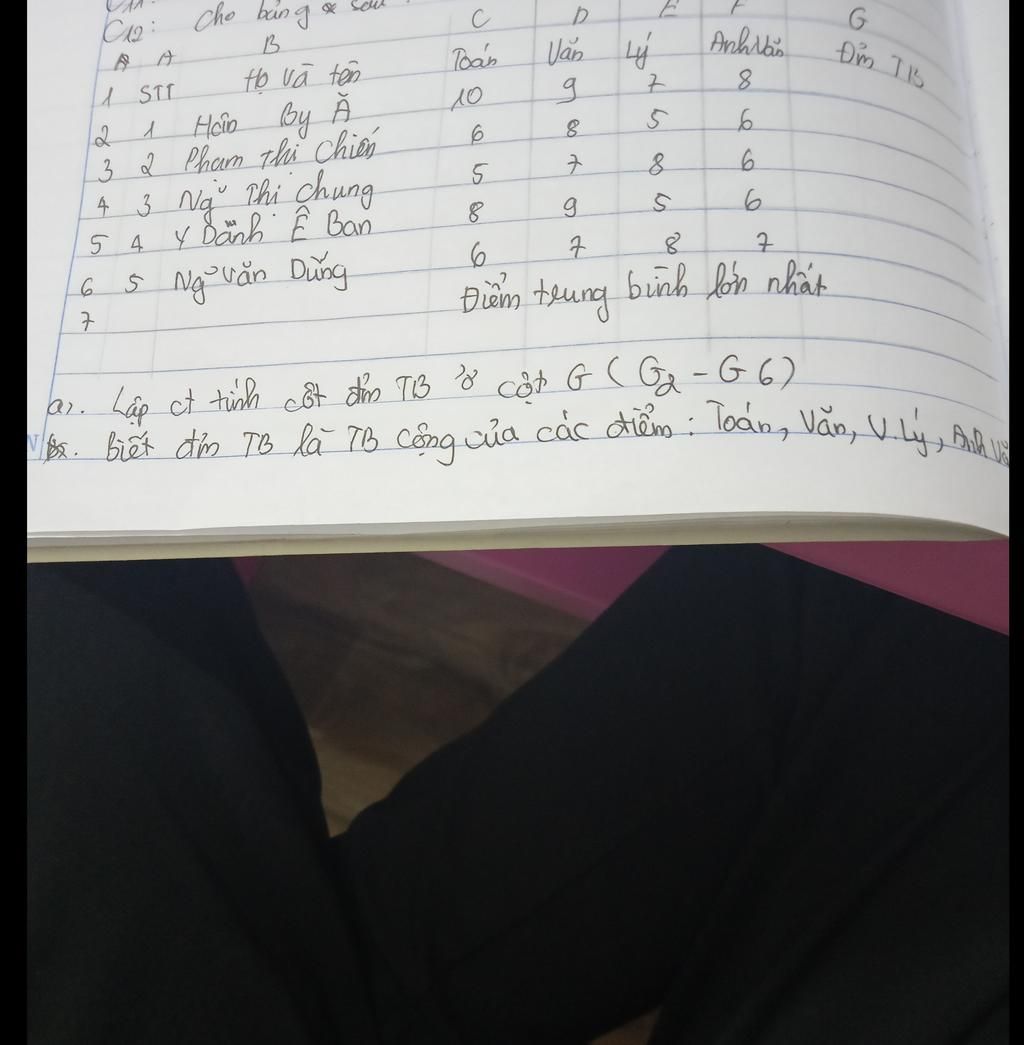 C12: Cho bảng sau
A B C D E F G
1 STT Họ và tên Toán Văn Lý Anh Văn Đm TB
2 1 By Ă 10 9 7 8
3 2 Phạm Thị Chiến 6 8 5 6
4 3 Ngỹ Thị Chung 5 7 8 6
5 4 Y Dănh Ê Ban 8 9 5 6
6 5 Ngỹ văn Dũng 6 7 8 7
7 Điểm trung bình lớn nhất
a). Lập ct tính cột đm TB ở cột G (G2 - G6)
Biết đm TB là TB cộng của các điểm: Toán, Văn, V.Lý, Anh Vă